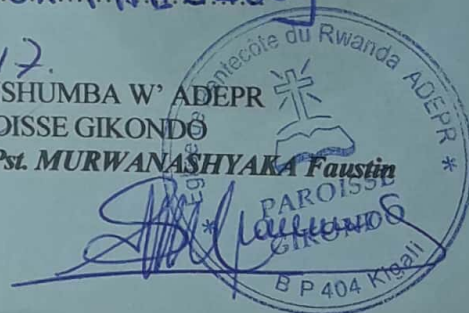 SHUMBA W' ADEPR
OISSE GIKONDO
Pst. MURWANASHYAKA Faustin
Eglise de Pentecôte du Rwanda ADEPR *
PAROISSE
GIKONDO
B P 404 Kigali